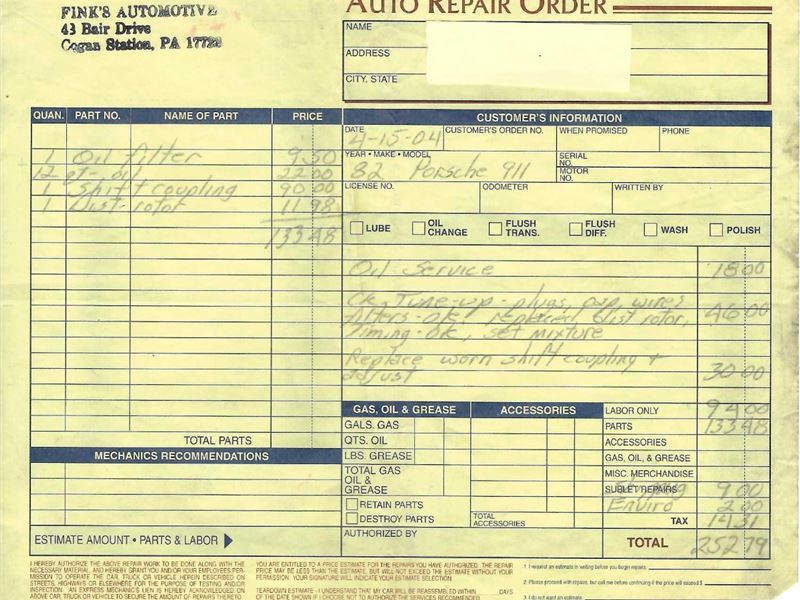 FINK'S AUTOMOTIVE
43 Bair Drive
Cogan Station, PA 17728
AUTO REPAIR ORDER
NAME
ADDRESS
CITY, STATE
QUAN. PART NO. NAME OF PART PRICE
1 Oil filter 9.50
12 qt. oil 22.00
1 Shift coupling 90.00
1 Dist. rotor 11.98
133.48
TOTAL PARTS
MECHANICS RECOMMENDATIONS
ESTIMATE AMOUNT • PARTS & LABOR
CUSTOMER'S INFORMATION
DATE 4-15-04 CUSTOMER'S ORDER NO. WHEN PROMISED PHONE
YEAR • MAKE • MODEL 82 Porsche 911 SERIAL NO.
MOTOR NO.
LICENSE NO. ODOMETER WRITTEN BY
LUBE OIL CHANGE FLUSH TRANS. FLUSH DIFF. WASH POLISH
Oil Service 18.00
Ck. Tune-up - plugs, cap, wires
filters - ok, replaced dist rotor, 46.00
Timing - ok, set mixture
Replace worn shift coupling +
adjust 30.00
GAS, OIL & GREASE ACCESSORIES
GALS. GAS
QTS. OIL
LBS. GREASE
TOTAL GAS OIL & GREASE
RETAIN PARTS
DESTROY PARTS
TOTAL ACCESSORIES
AUTHORIZED BY
LABOR ONLY 94.00
PARTS 133.48
ACCESSORIES
GAS, OIL, & GREASE
MISC. MERCHANDISE
SUBLET REPAIRS 9.00
Enviro 2.00
TAX 14.31
TOTAL 252.79
I HEREBY AUTHORIZE THE ABOVE REPAIR WORK TO BE DONE ALONG WITH THE
NECESSARY MATERIAL, AND HEREBY GRANT YOU AND/OR YOUR EMPLOYEES PER-
MISSION TO OPERATE THE CAR, TRUCK OR VEHICLE HEREIN DESCRIBED ON
STREETS, HIGHWAYS OR ELSEWHERE FOR THE PURPOSE OF TESTING AND/OR
INSPECTION. AN EXPRESS MECHANICS LIEN IS HEREBY ACKNOWLEDGED ON
ABOVE CAR, TRUCK OR VEHICLE TO SECURE THE AMOUNT OF REPAIRS THERETO.
YOU ARE ENTITLED TO A PRICE ESTIMATE FOR THE REPAIRS YOU HAVE AUTHORIZED. THE REPAIR
PRICE MAY BE LESS THAN THE ESTIMATE, BUT WILL NOT EXCEED THE ESTIMATE WITHOUT YOUR
PERMISSION. YOUR SIGNATURE WILL INDICATE YOUR ESTIMATE SELECTION.
TEARDOWN ESTIMATE - I UNDERSTAND THAT MY CAR WILL BE REASSEMBLED WITHIN DAYS
OF THE DATE SHOWN IF I CHOOSE NOT TO AUTHORIZE THE SERVICES RECOMMENDED.
1. I request an estimate in writing before you begin repairs.
2. Please proceed with repairs, but call me before continuing if the price will exceed $
3. I do not want an estimate.